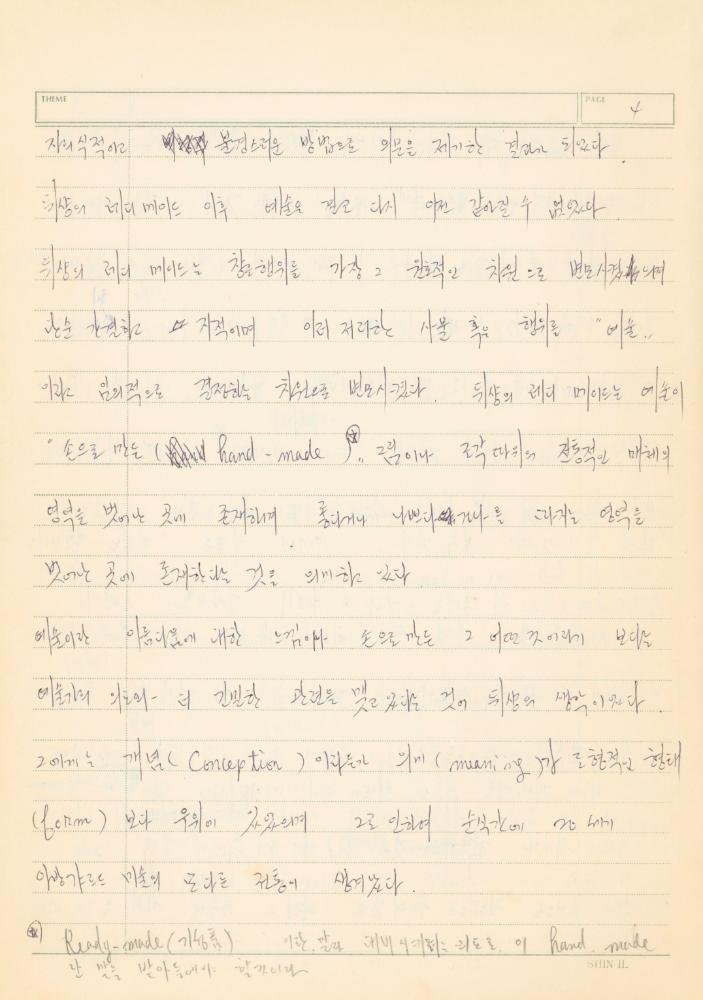 THEME
PAGE 4
자의식적이고 불경스러운 방법으로 의문을 제기한 결과가 되었다.
뒤샹의 레디 메이드 이후 예술은 결코 다시 이전 같아질 수 없었다.
뒤샹의 레디 메이드는 창조행위를 가장 그 원초적인 차원으로 변모시켰으며
단순 간결하고 지적이며 이러 저러한 사물 혹은 행위를 "예술"
이라고 임의적으로 결정하는 차원으로 변모시켰다. 뒤샹의 레디 메이드는 예술이
"손으로 만든 (hand-made)" 그림이나 조각 따위의 전통적인 매체의
영역을 벗어난 곳에 존재하며 좋다거나 나쁘다거나를 따지는 영역을
벗어난 곳에 존재한다는 것을 의미하고 있다.
예술이란 아름다움에 대한 느낌이나 손으로 만든 그 어떤 것이라기 보다는
예술가의 의도와 더 긴밀한 관련을 맺고 있다는 것이 뒤샹의 생각이었다.
그에게는 개념(Conception)이라든가 의미(meaning)가 조형적인 형태
(form)보다 우위에 있었으며 그로 인하여 순식간에 20세기
아방가르드 미술의 또다른 전통이 생겨났다.
Ready-made(기성품)이란 말과 대비시키려는 의도로 이 hand made
란 말을 받아들여야 할것이다
SHIN IL